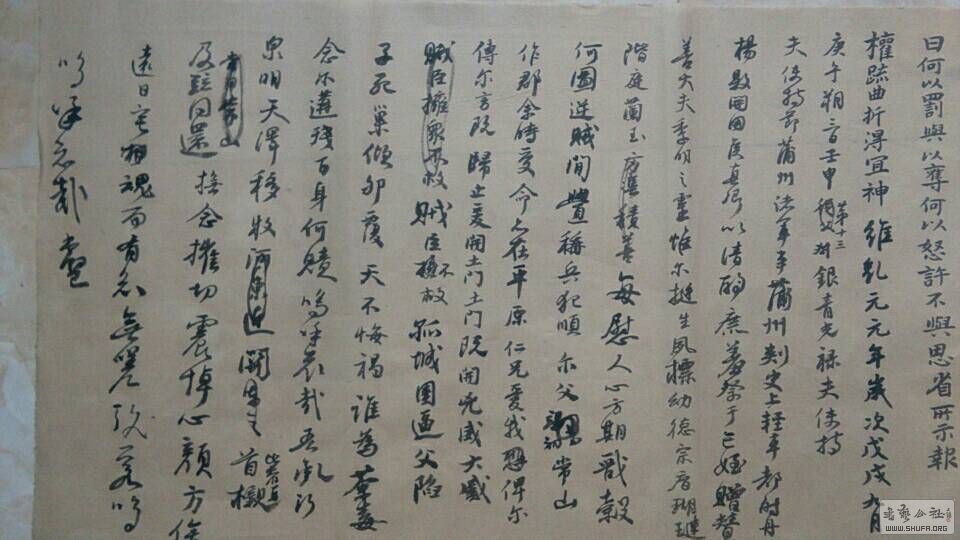 曰何以罰與以奪何以怒許不與思省所示報
權疏曲折得宜神 維乹元元年歲次戊戌九月
庚午朔三日壬申 第十三叔 銀青光祿夫使持
夫使持節蒲州諸軍事蒲州刾史上輕車都尉丹
楊縣開國侯真卿以清酌庶羞祭于亡姪贈贊
善大夫季明之靈惟尔挺生夙標幼德宗庿瑚璉
階庭蘭玉方憑積善每慰人心方期戩穀
何圖逆賊閒舋稱兵犯順尔父 常山
作郡余時受命亦在平原仁兄愛我恐俾尔
傳尔言既歸止爰開土門土門既開兇威大蹙
賊臣擁衆不救賊臣擁不救孤城圍逼父陷
子死巢傾卵覆天不悔禍誰為荼毒
念尔遘殘百身何贖嗚呼哀哉吾承
泉明天澤移牧河東近 泉明 首櫬
常山 及茲同還撫念摧切震悼心顏方俟
遠日 魂而有知無嗟久客嗚
嗚呼哀哉尚
書藝公社
WWW.SHUFA.ORG